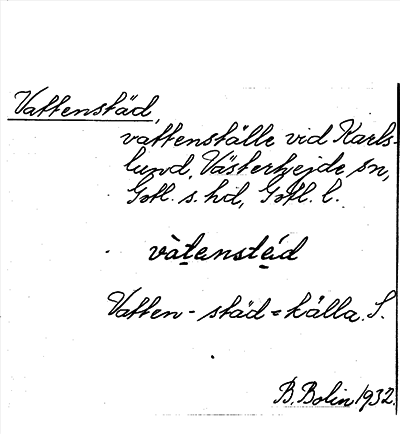 Vattenstäd,
vattenställe vid Karls-
lund, Västerhejde sn,
Gotl. s. hd, Gotl. l.
vàtenstèd
Vatten - städ = källa. S.
B. Bolin 1932.